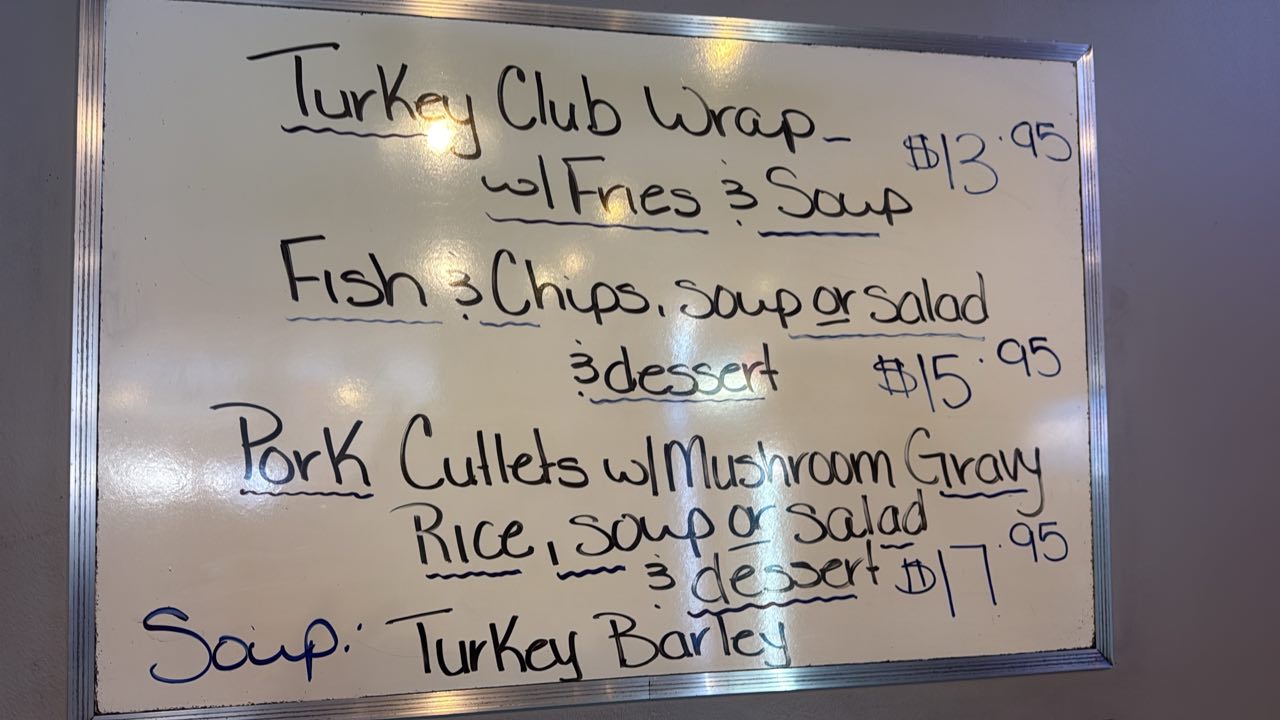 Turkey Club Wrap - $13.95
w/ Fries & Soup
Fish & Chips, soup or salad
& dessert $15.95
Pork Cutlets w/ Mushroom Gravy
Rice, soup or salad
& dessert $17.95
Soup: Turkey Barley